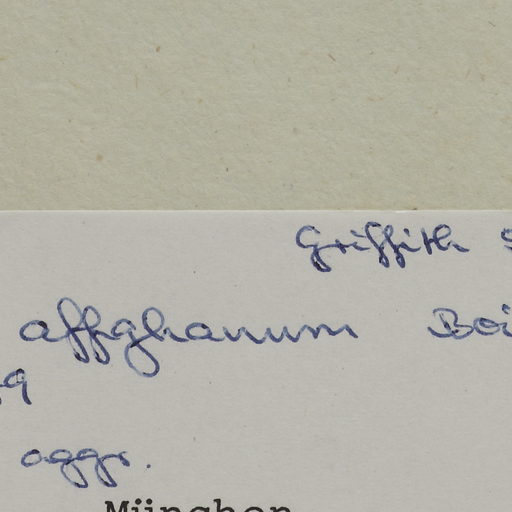 Griffith
affghanum Boi
9
aggr.
München